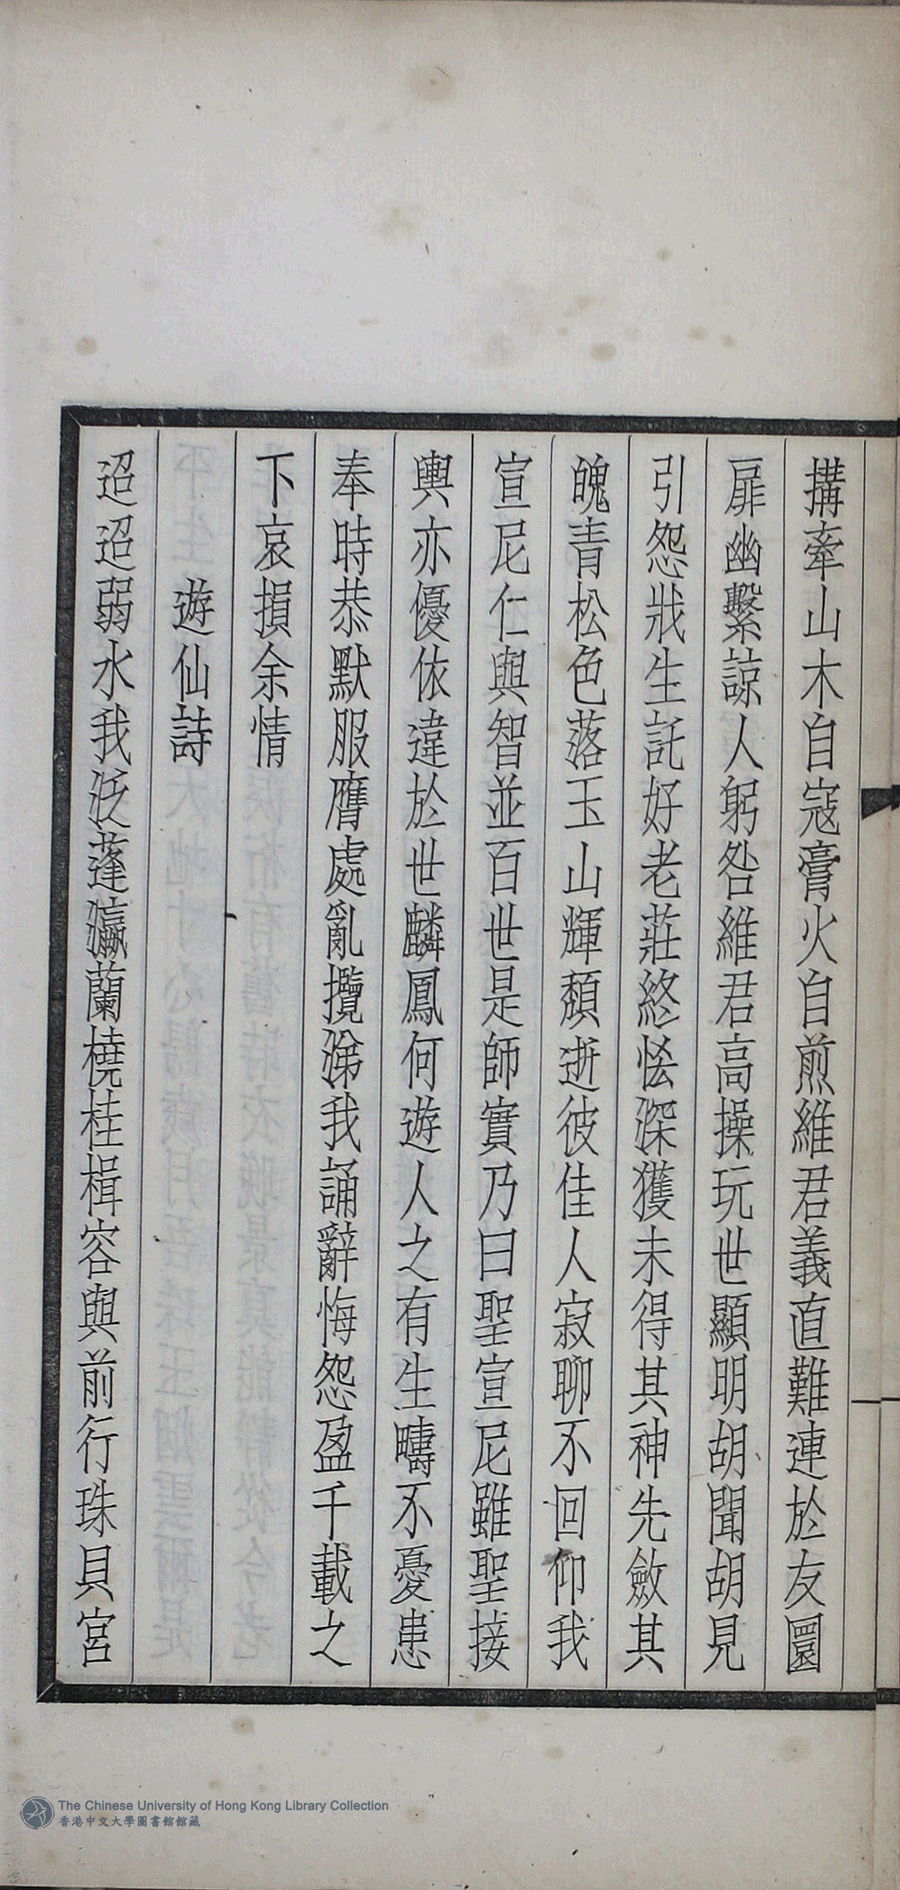 搆牽山木自寇膏火自煎維君義直難連於友圜
扉幽繫諒人躬咎維君高操玩世顯明胡聞胡見
引怨戕生託好老莊終恡深獲未得其神先斂其
魄青松色落玉山輝頽逝彼佳人寂聊不回仰我
宣尼仁與智並百世是師實乃曰聖宣尼雖聖接
輿亦優依違於世麟鳳何遊人之有生疇不憂患
奉時恭默服膺處亂攬涕我誦辭悔怨盈千載之
下哀損余情
遊仙詩
迢迢弱水我泛蓬瀛蘭橈桂楫容與前行珠貝宮
The Chinese University of Hong Kong Library Collection
香港中文大學圖書館館藏